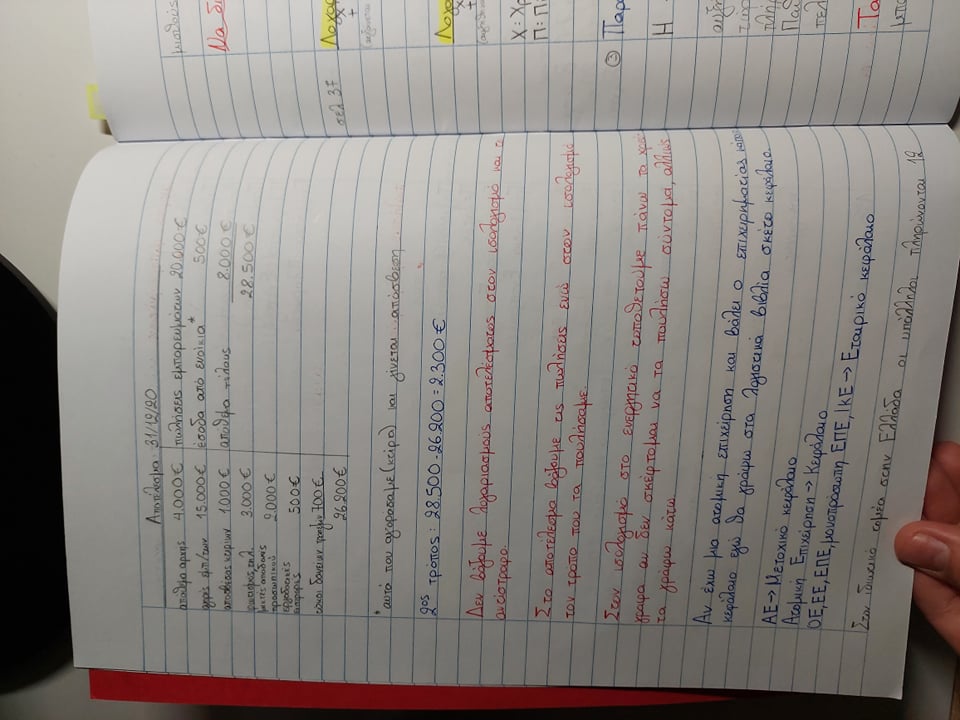 Αποτέλεσμα 31/12/20
απόθεμα αρχής 4.000€ πωλήσεις εμπορευμάτων 20.000€
αγορές εμπ/των 15.000€ έσοδα από ενοίκια* 500€
αποσβέσεις κτιρίων 1.000€ απόθεμα τέλους 8.000€
3.000€ 28.500€
μικτές αποδοχές
προσωπικού 2.000€
εργοδοτικές
εισφορές 500€
τόκοι δανείων τραπεζών 700€
26.200€
*αυτό που αγοράσαμε (κτίρια) και γίνεται απόσβεση
2ος τρόπος: 28.500-26.200=2.300€
Δεν βάζουμε λογαριασμούς αποτελέσματος στον ισολογισμό και τ
αντίστροφο.
Στο αποτέλεσμα βάζουμε τις πωλήσεις ενώ στον ισολογισμό
τον τρόπο που τα πουλήσαμε.
Στον ισολογισμό στο ενεργητικό τοποθετούμε πάνω τα χρεό
γραφα αν δεν σκέφτομαι να τα πουλήσω σύντομα, αλλιώς
τα γράφω κάτω.
Αν έχω μια ατομική επιχείρηση και βάλει ο επιχειρηματίας κάποι
κεφάλαιο εγώ θα γράψω στα λογιστικά βιβλία σκέτο κεφάλαιο.
ΑΕ→Μετοχικό κεφάλαιο
Ατομική Επιχείρηση→Κεφάλαιο
ΟΕ,ΕΕ,ΕΠΕ,μονοπρόσωπη ΕΠΕ,ΙΚΕ→Εταιρικό κεφάλαιο
Στον ιδιωτικό τομέα στην Ελλάδα οι υπάλληλοι πληρώνονται 12
μισθούς
Να δι
σελ 37
Λογαρ
Χ
+
(αυξάνεται
Λογα
Χ
+
Χ: Χρ
Π: Π
③ Παρα
Η
αυξη
Τα
μπο